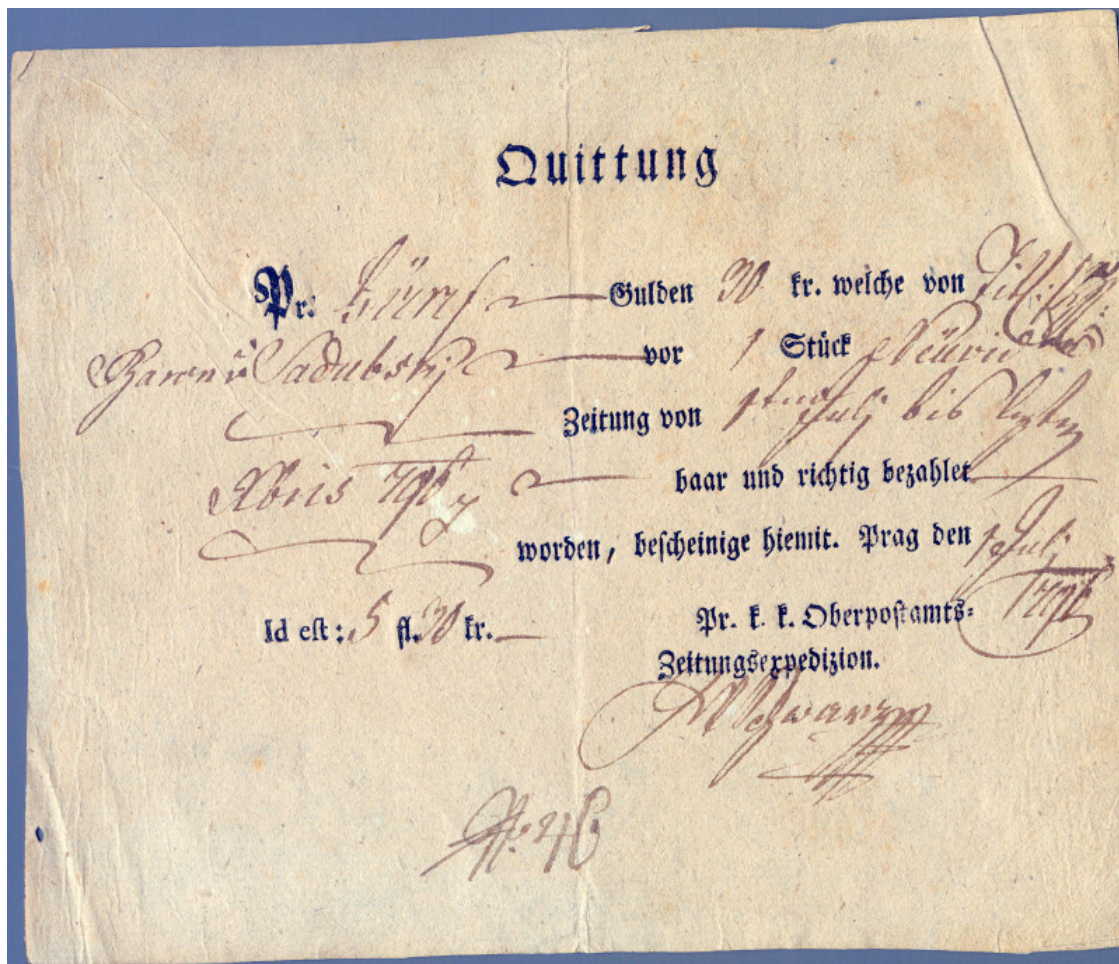 Quittung
Pr. fünf Gulden 30 kr. welche von Titl:
Baron v Sadubsky vor 1 Stück
Zeitung von July bis
baar und richtig bezahlet
worden, bescheinige hiemit. Prag den July
Id est: 5 fl. 30 kr. Pr. k. k. Oberpostamts-
Zeitungsexpedizion.
Schwarz